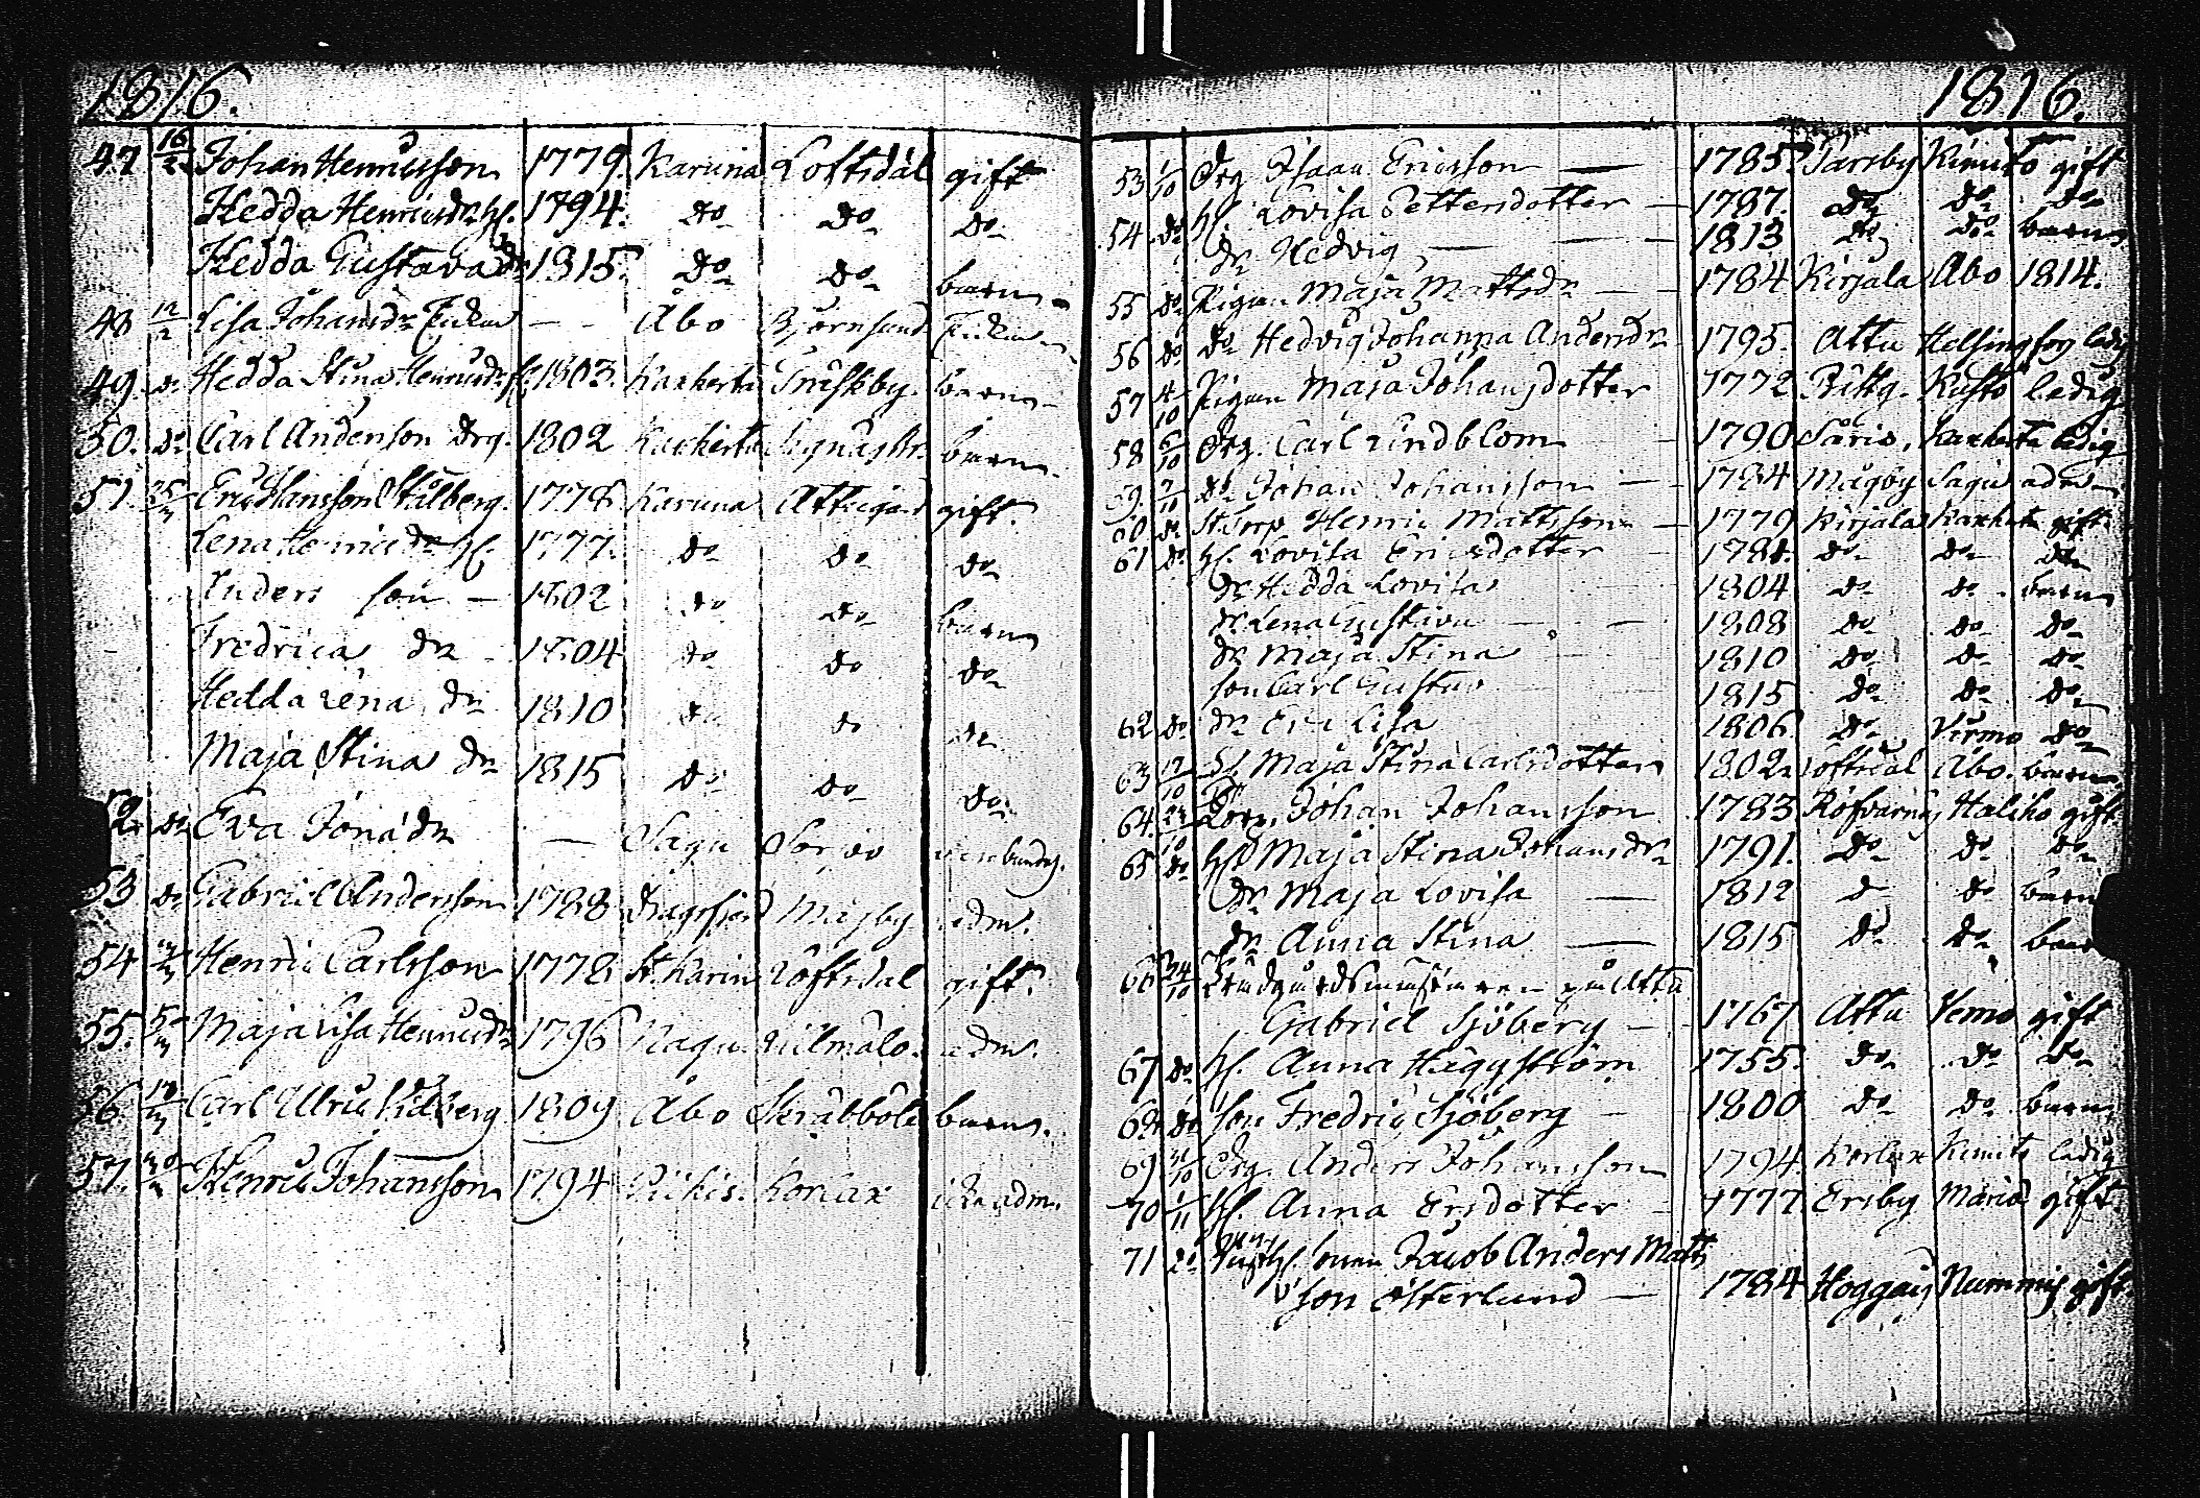 1816.
47 16/2 Johan Henricsson 1779. Karuna Loftsdal gift
Hedda Henricsdr hu. 1794. do do do
Hedda Gustava dr 1815. do do barn
48 12/2 Lisa Johansdr — Åbo Björnsund
49. do Hedda Stina Henricsdr 1803. Kaxkerta barn
50. do Carl Anderson drg. 1802 Kaxkerta barn
51. Eric Hansson Stålberg. 1778 Karuna Attugård gift.
Lena Henricsdr hu. 1777. do do do
Anders son — 1802 do do barn
Fredrica dr 1804 do do do
Hedda Lena dr 1810 do do do
Maja Stina dr 1815 do do do
52. do Eva Jonadr — Sagu
53 do Gabriel Andersson 1788 Dragsfjerd Misby adm.
54 Henric Carlsson 1778 St. Karin Loftsdal gift.
55. Maja Lisa Henricsdr 1796 Nagu adm.
56. Carl Ulric 1809 Åbo Skräbböle barn.
57. Henric Johansson 1794 Pikis. Korlax icke adm.
1816.
53 1/10 Drg Isaac Ericsson — 1785. Särsby Kimito gift
54 do hu Lovisa Pettersdotter — 1787. do do do
dr Hedvig — 1813 do do barn
55 do Pigan Maja Mattsdr — 1784 Kirjala Åbo 1814.
56 do do Hedvig Johanna Andersdr 1795. Attu Helsingfors ledig
57 4/10 Pigan Maja Johansdotter 1772 Kustö ledig
58 6/10 Drg. Carl Lindblom 1790 Kaxkerta ledig
59. 7/10 do Johan Johansson — 1784 Mågby Sagu adm
60 do Henric Mattsson — 1779 Kirjala Kaxkerta gift
61 do hu. Lovisa Ericsdotter do do do
dr Hedda Lovisa 1804 do do barn
dr Lena Gustava — 1808 do do do
dr Maja Stina 1810 do do do
son Carl Gustav 1815 do do do
62 do dr Eva Lisa 1806 do Virmo do
63 17/10 Maja Stina Carlsdotter 1802 Loftsdal Åbo. barn
64. Johan Johansson 1783 Röfvarnäs Haliko gift
65 do hu Maja Stina Johansdr 1791. do do do
dr Maja Lovisa — 1812 do do barn
dr Anna Stina — 1815 do do barn
66 24/10 på Attu
Gabriel Sjöberg — 1767 Attu Vemo gift
67 do hu. Anna Häggström 1755. do do do
68 do son Fredric Sjöberg — 1800 do do barn
69 Drg. Anders Johansson 1794. Korlax Kimito ledig
70 1/11 hu. Anna Ersdotter 1777. Ersby Maria gift
71 do Jacob Anders Matts
son Österlund — 1784 Hoggais Nummis gift